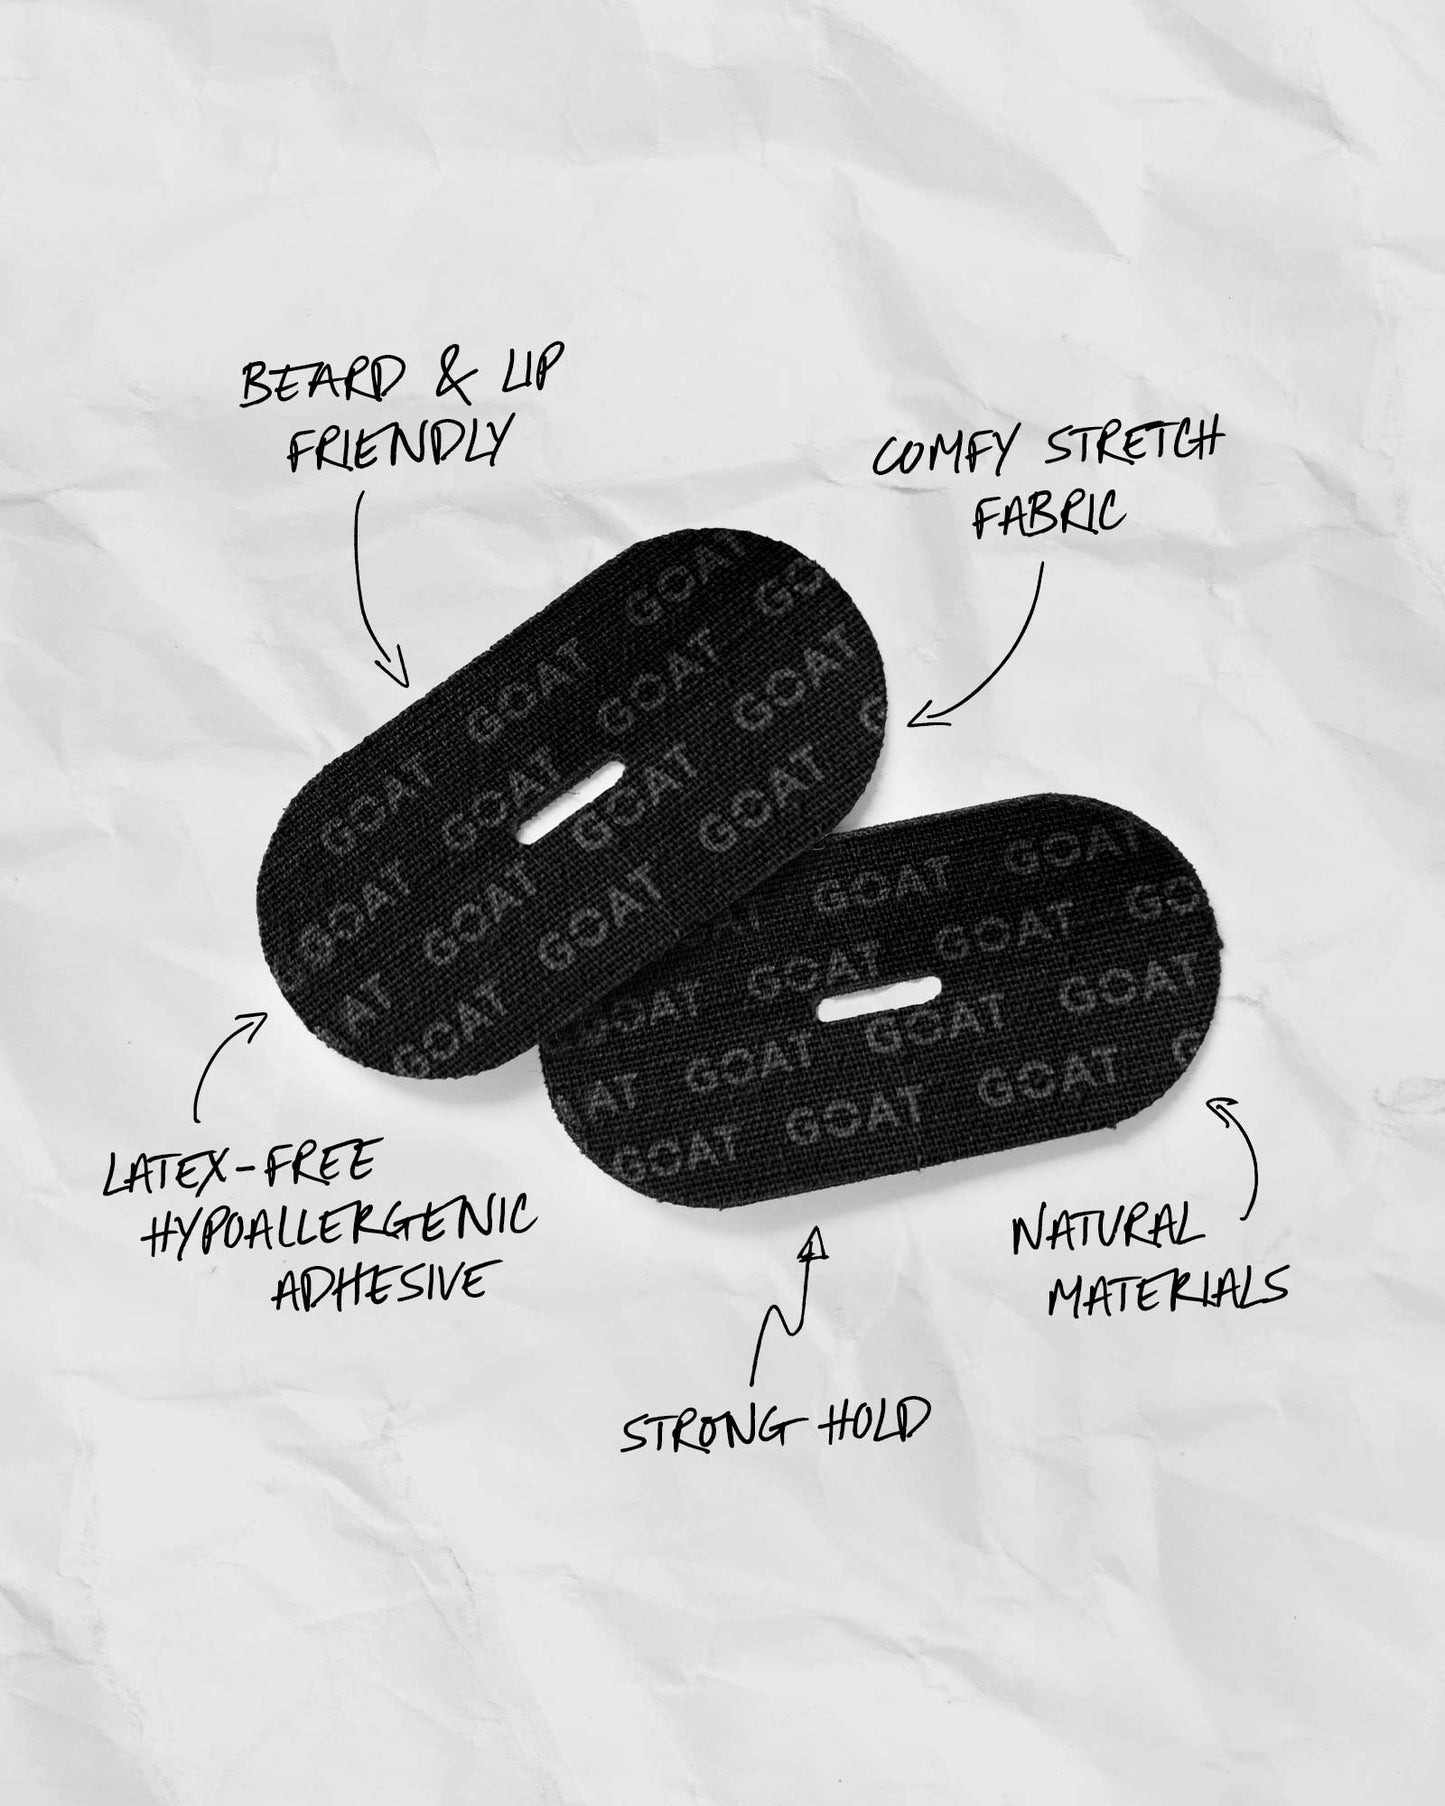 BEARD & LIP
FRIENDLY
COMFY STRETCH
FABRIC
GOAT
GO
GOAT
GOAT
GOAT
G
GOAT
GOAT
GOAT
GOAT
GOAT
GOAT
GOAT
AT
GOAT
GOAT
GOAT
GO
GOAT
GOAT
GOAT
GOAT
GOAT
GOAT
G
AT
GOAT
GOAT
GOAT
LATEX-FREE
HYPOALLERGENIC
ADHESIVE
NATURAL
MATERIALS
STRONG HOLD